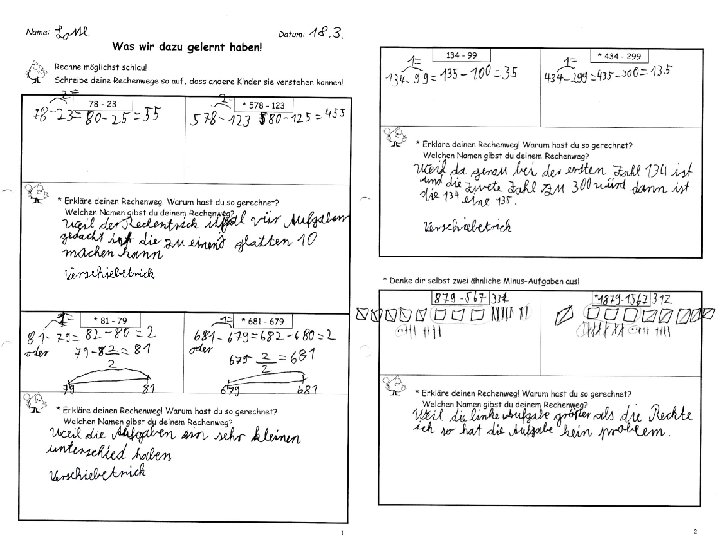 Name:
Datum: 18.3.
Was wir dazu gelernt haben!
Rechne möglichst schlau!
Schreibe deine Rechenwege so auf, dass andere Kinder sie verstehen können!
78 - 23
78-23=80-25=55
* 578 - 123
578-123 580-125=455
* Erkläre deinen Rechenweg. Warum hast du so gerechnet?
Welchen Namen gibst du deinem Rechenweg?
Weil der Rechentrick für Aufgaben
gedacht ist die zu einem glatten 10
machen kann
Verschiebetrick
* 81 - 79
81-79=82-80=2
oder 79 81
2
79 81
* 681 - 679
681-679=682-680=2
oder 679 2 =681
2
679 681
* Erkläre deinen Rechenweg! Warum hast du so gerechnet?
Welchen Namen gibst du deinem Rechenweg?
Weil die Aufgaben sehr kleinen
unterschied haben
Verschiebetrick
1
134 - 99
1=
134-99=135-100=35
* 434 - 299
1=
434-299=435-300=135
* Erkläre deinen Rechenweg! Warum hast du so gerechnet?
Welchen Namen gibst du deinem Rechenweg?
Weil da genau bei der ersten Zahl 134 ist
und die zweite Zahl zu 300 wird dann ist
die 134 eine 135.
Verschiebetrick
* Denke dir selbst zwei ähnliche Minus-Aufgaben aus!
879-567 312
*1879-1567 312
* Erkläre deinen Rechenweg! Warum hast du so gerechnet?
Welchen Namen gibst du deinem Rechenweg?
Weil die linke Aufgabe größer als die Rechte
ich so hat die Aufgabe kein problem.
2